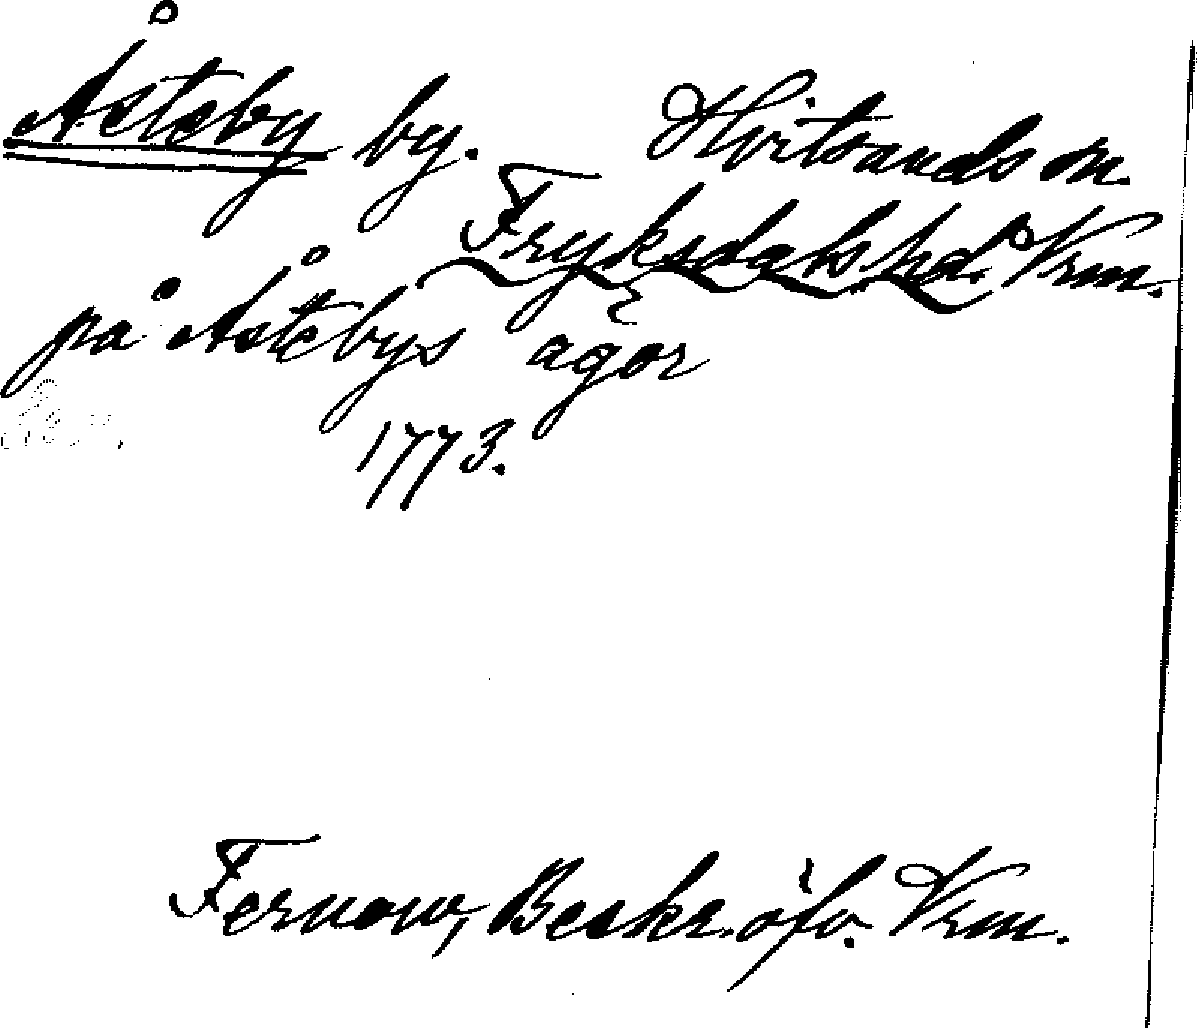 Åsteby by. Hvitsands sn.
Fryksdals hd. Vrm.
på Åstebys ägor
1773.
Fernow, Beskr. öfv. Vrm.